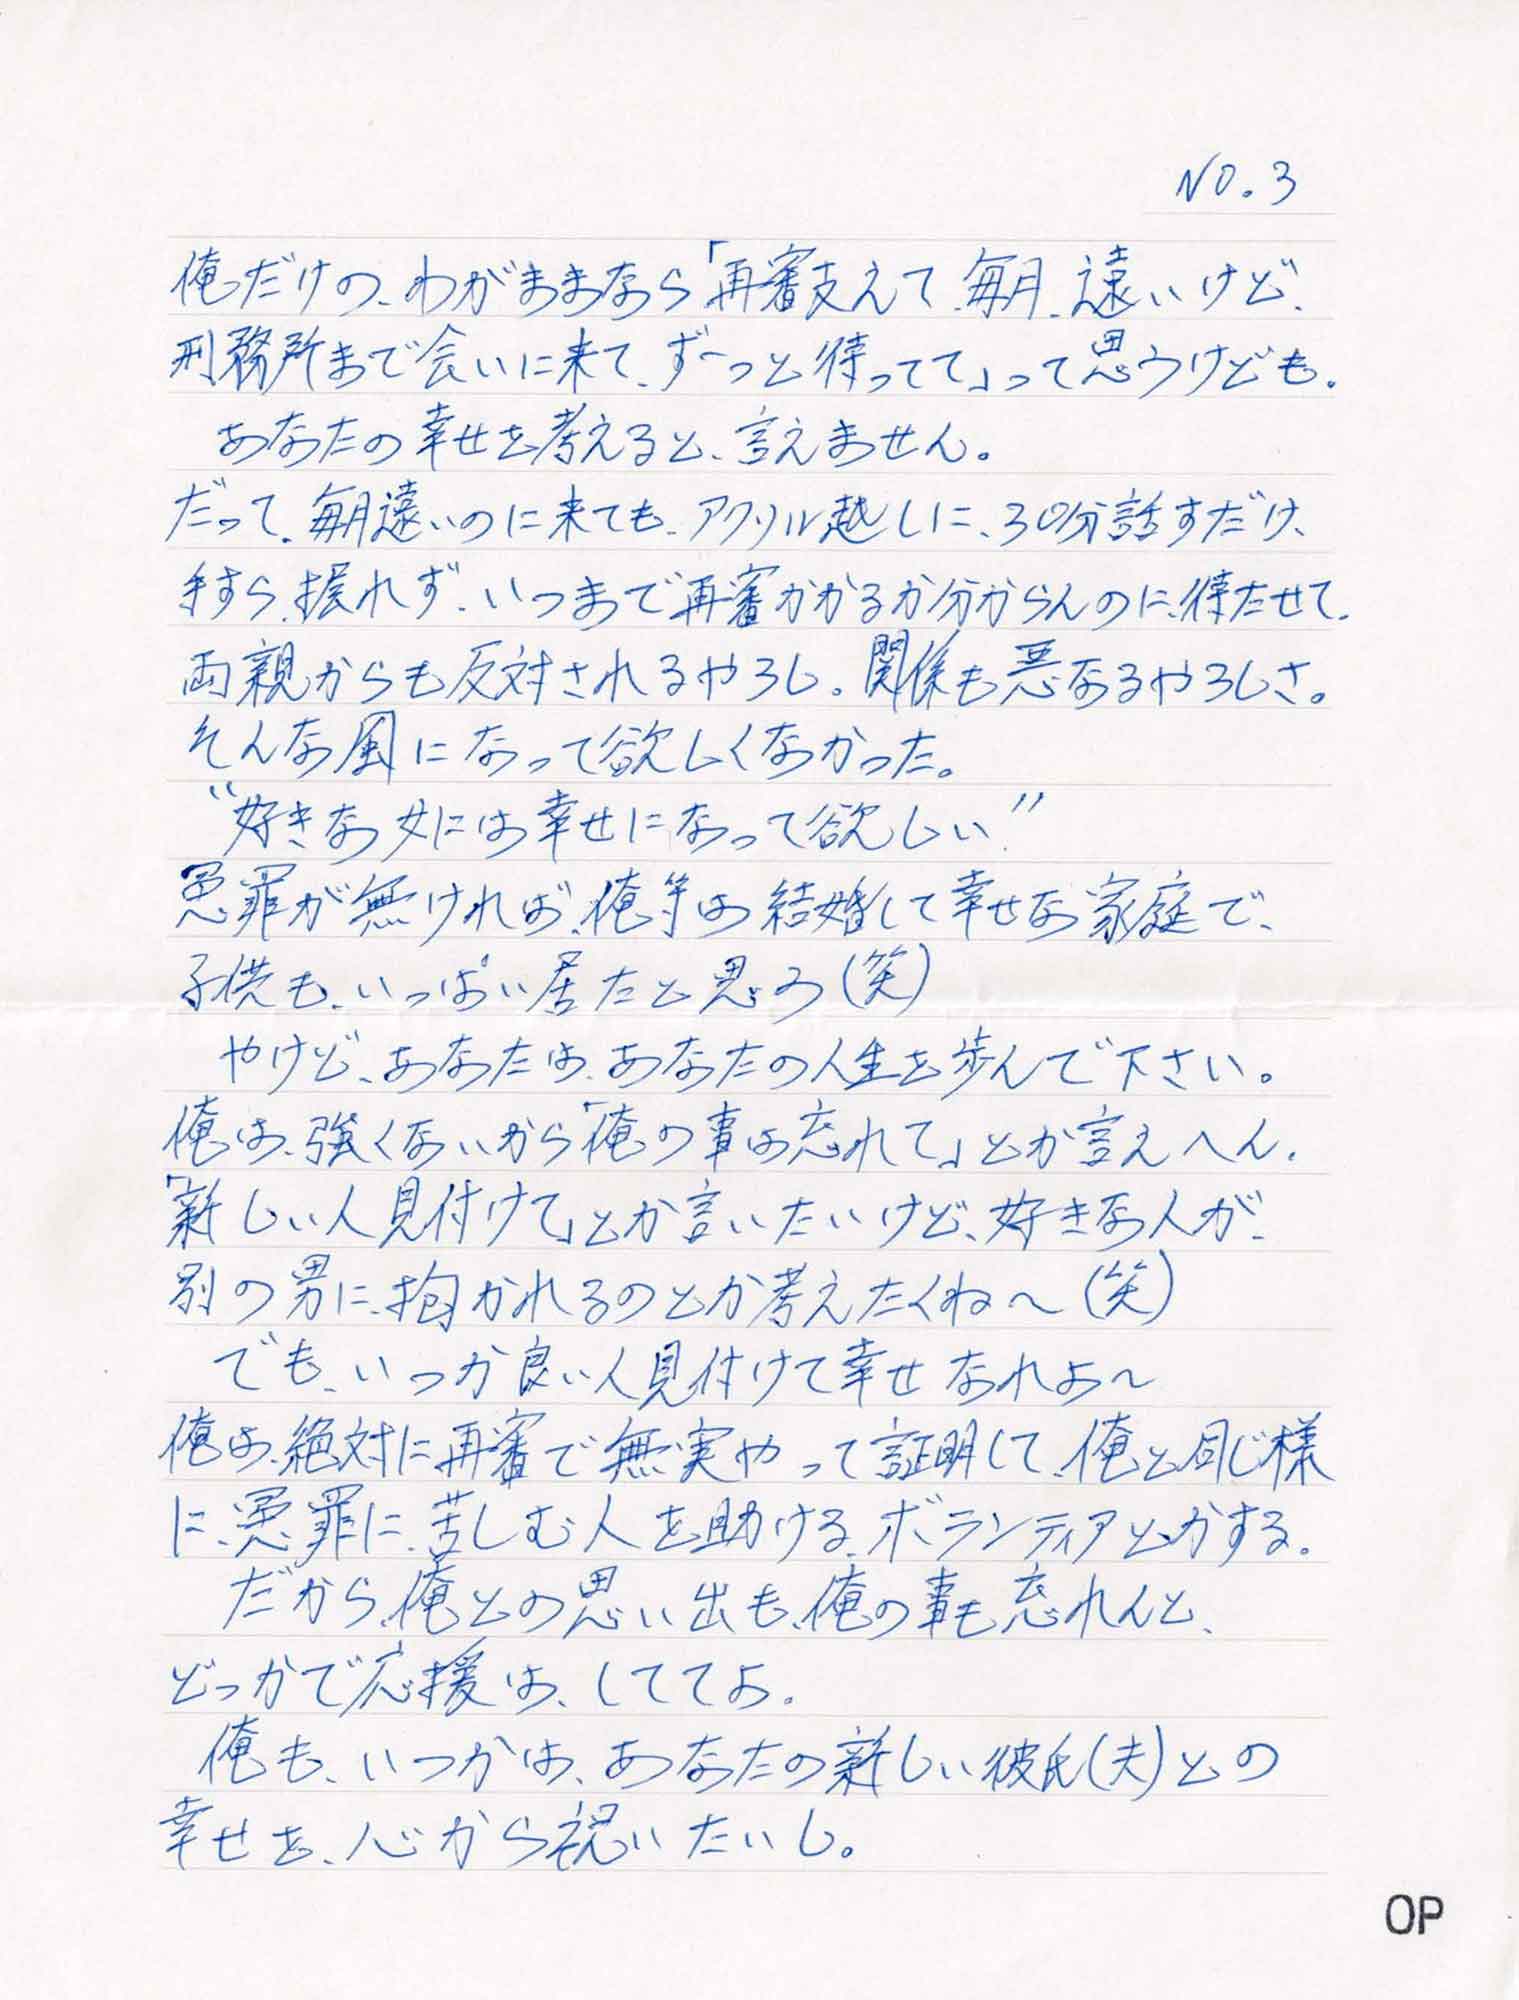 NO.3
俺だけの、わがままなら「再審支えて、毎月、遠いけど、
刑務所まで会いに来て、ずーっと待ってて」って思うけども。
あなたの幸せを考えると、言えません。
だって、毎月遠いのに来ても、アクリル越しに、30分話すだけ、
手すら、握れず、いつまで再審かかるか分からんのに、待たせて、
両親からも反対されるやろし。関係も悪なるやろしさ。
そんな風になって欲しくなかった。
“好きな女には幸せになって欲しい”
冤罪が無ければ、俺等は結婚して幸せな家庭で、
子供も、いっぱい居たと思う(笑)
やけど、あなたは、あなたの人生を歩んで下さい。
俺は、強くないから「俺の事は忘れて」とか言えへん。
「新しい人見付けて」とか言いたいけど、好きな人が、
別の男に、抱かれるのとか考えたくね〜(笑)
でも、いつか良い人見付けて幸せなれよ〜
俺は、絶対に再審で無実やって証明して、俺と同じ様
に、冤罪に、苦しむ人を助ける、ボランティアとかする。
だから、俺との思い出も、俺の事も忘れんと、
どっかで応援は、しててよ。
俺も、いつかは、あなたの新しい彼氏(夫)との
幸せを、心から祝いたいし。
OP